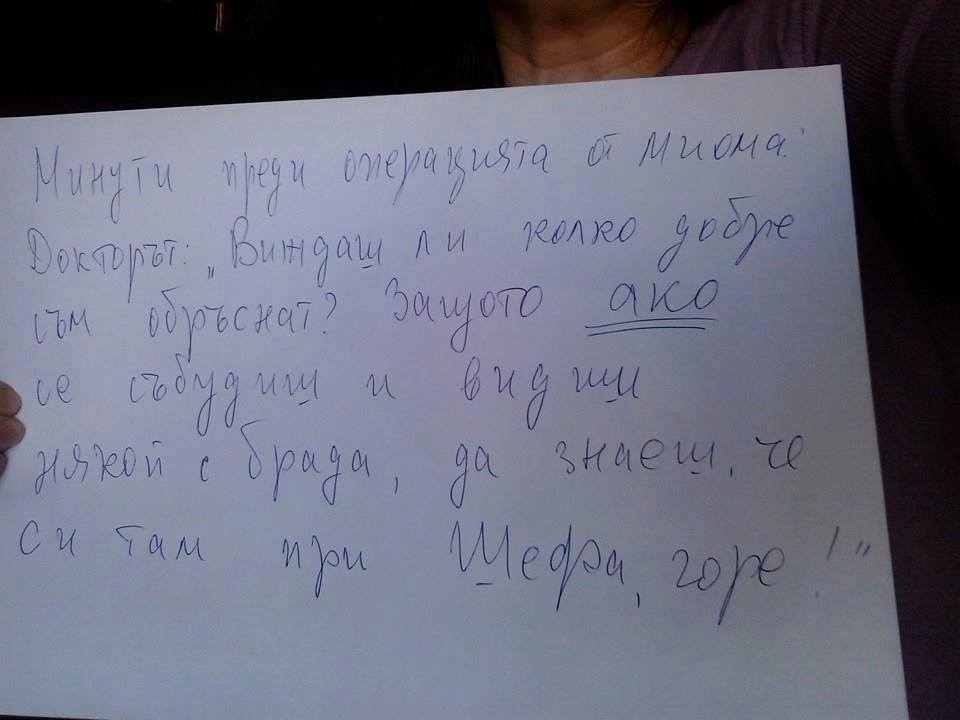 Минути преди операцията от миома:
Докторът: „Виждаш ли колко добре
съм обръснат? Защото ако
се събудиш и видиш
някой с брада, да знаеш, че
си там при Шефа, горе!"